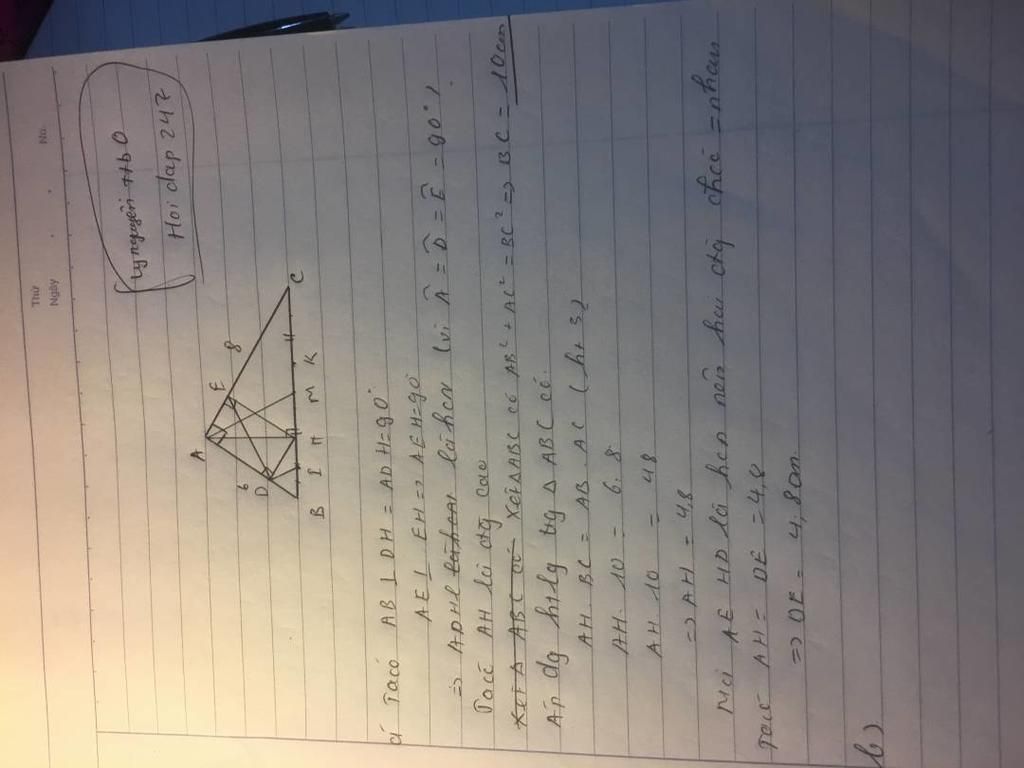 Thứ
Ngày
No.
Hoi dap 247
A
6
D
E
8
B I H M K C
a) Ta có AB ⊥ DH = ADH = 90°
AE ⊥ EH => AEH = 90°
=> ADHE là hcn (vì Â = D̂ = Ê = 90°)
Ta có AH là đg cao
Xét Δ ABC có Xét Δ ABC có AB² + AC² = BC² => BC = 10cm
Áp dg htlg tg Δ ABC có.
AH. BC = AB. AC (ht 3)
AH. 10 = 6. 8
AH. 10 = 48
=> AH = 4,8
Mà AE HD là hcn nên hai đg chéo = nhau
Ta có AH = DE = 4,8
=> DE = 4,8cm.
b)